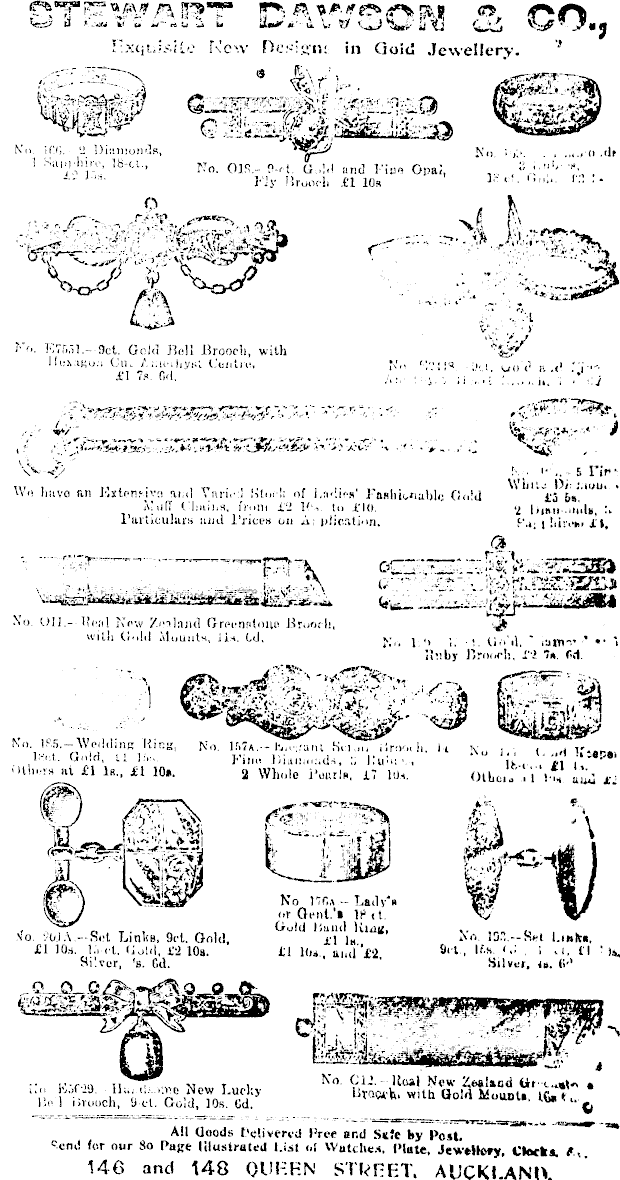 STEWART DAWSON & CO.,
Exquisite New Designs in Gold Jewellery.
No. 2 Diamonds,
1 Sapphire, 18-ct.,
£2 15s.
No. O18.— 9-ct. Gold and Fine Opal,
Fly Brooch £1 10s
No.
18 ct. Gold
No. E7551.—9ct. Gold Bell Brooch, with
Hexagon Cut Amethyst Centre,
£1 7s. 6d.
No. 9ct. Gold and
We have an Extensive and Varied Stock of Ladies' Fashionable Gold
Muff Chains, from £2 10s. to £10.
Particulars and Prices on Application.
5 Fine
White Diamonds
£5 5s.
2 Diamonds, 3
Sapphires £4,
No. O11.—Real New Zealand Greenstone Brooch,
with Gold Mounts, 11s. 6d.
No. Gold, Diamond
Ruby Brooch, £2 7s. 6d.
No. 185.—Wedding Ring,
18ct. Gold,
Others at £1 1s., £1 10s.
No. 157A.—Elegant Scroll Brooch, 14
Fine Diamonds, 3 Rubies,
2 Whole Pearls, £7 10s.
No. Gold Keeper
Others and £2
No. 176A — Lady's
or Gent.'s 18 ct.
Gold Band Ring,
£1 1s.,
£1 10s., and £2.
No. Set Links, 9ct. Gold,
£1 10s. 15 ct. Gold, £2 10s.
Silver, 6d.
No. 193.—Set Links,
9ct., 15s.
Silver, 4s. 6d
No. Handsome New Lucky
Bell Brooch, 9 ct. Gold, 10s. 6d.
No. C12.—Real New Zealand Greenstone
Brooch, with Gold Mounts,
All Goods Delivered Free and Safe by Post.
Send for our 80 Page Illustrated List of Watches, Plate, Jewellery, Clocks, &c.
146 and 148 QUEEN STREET, AUCKLAND.